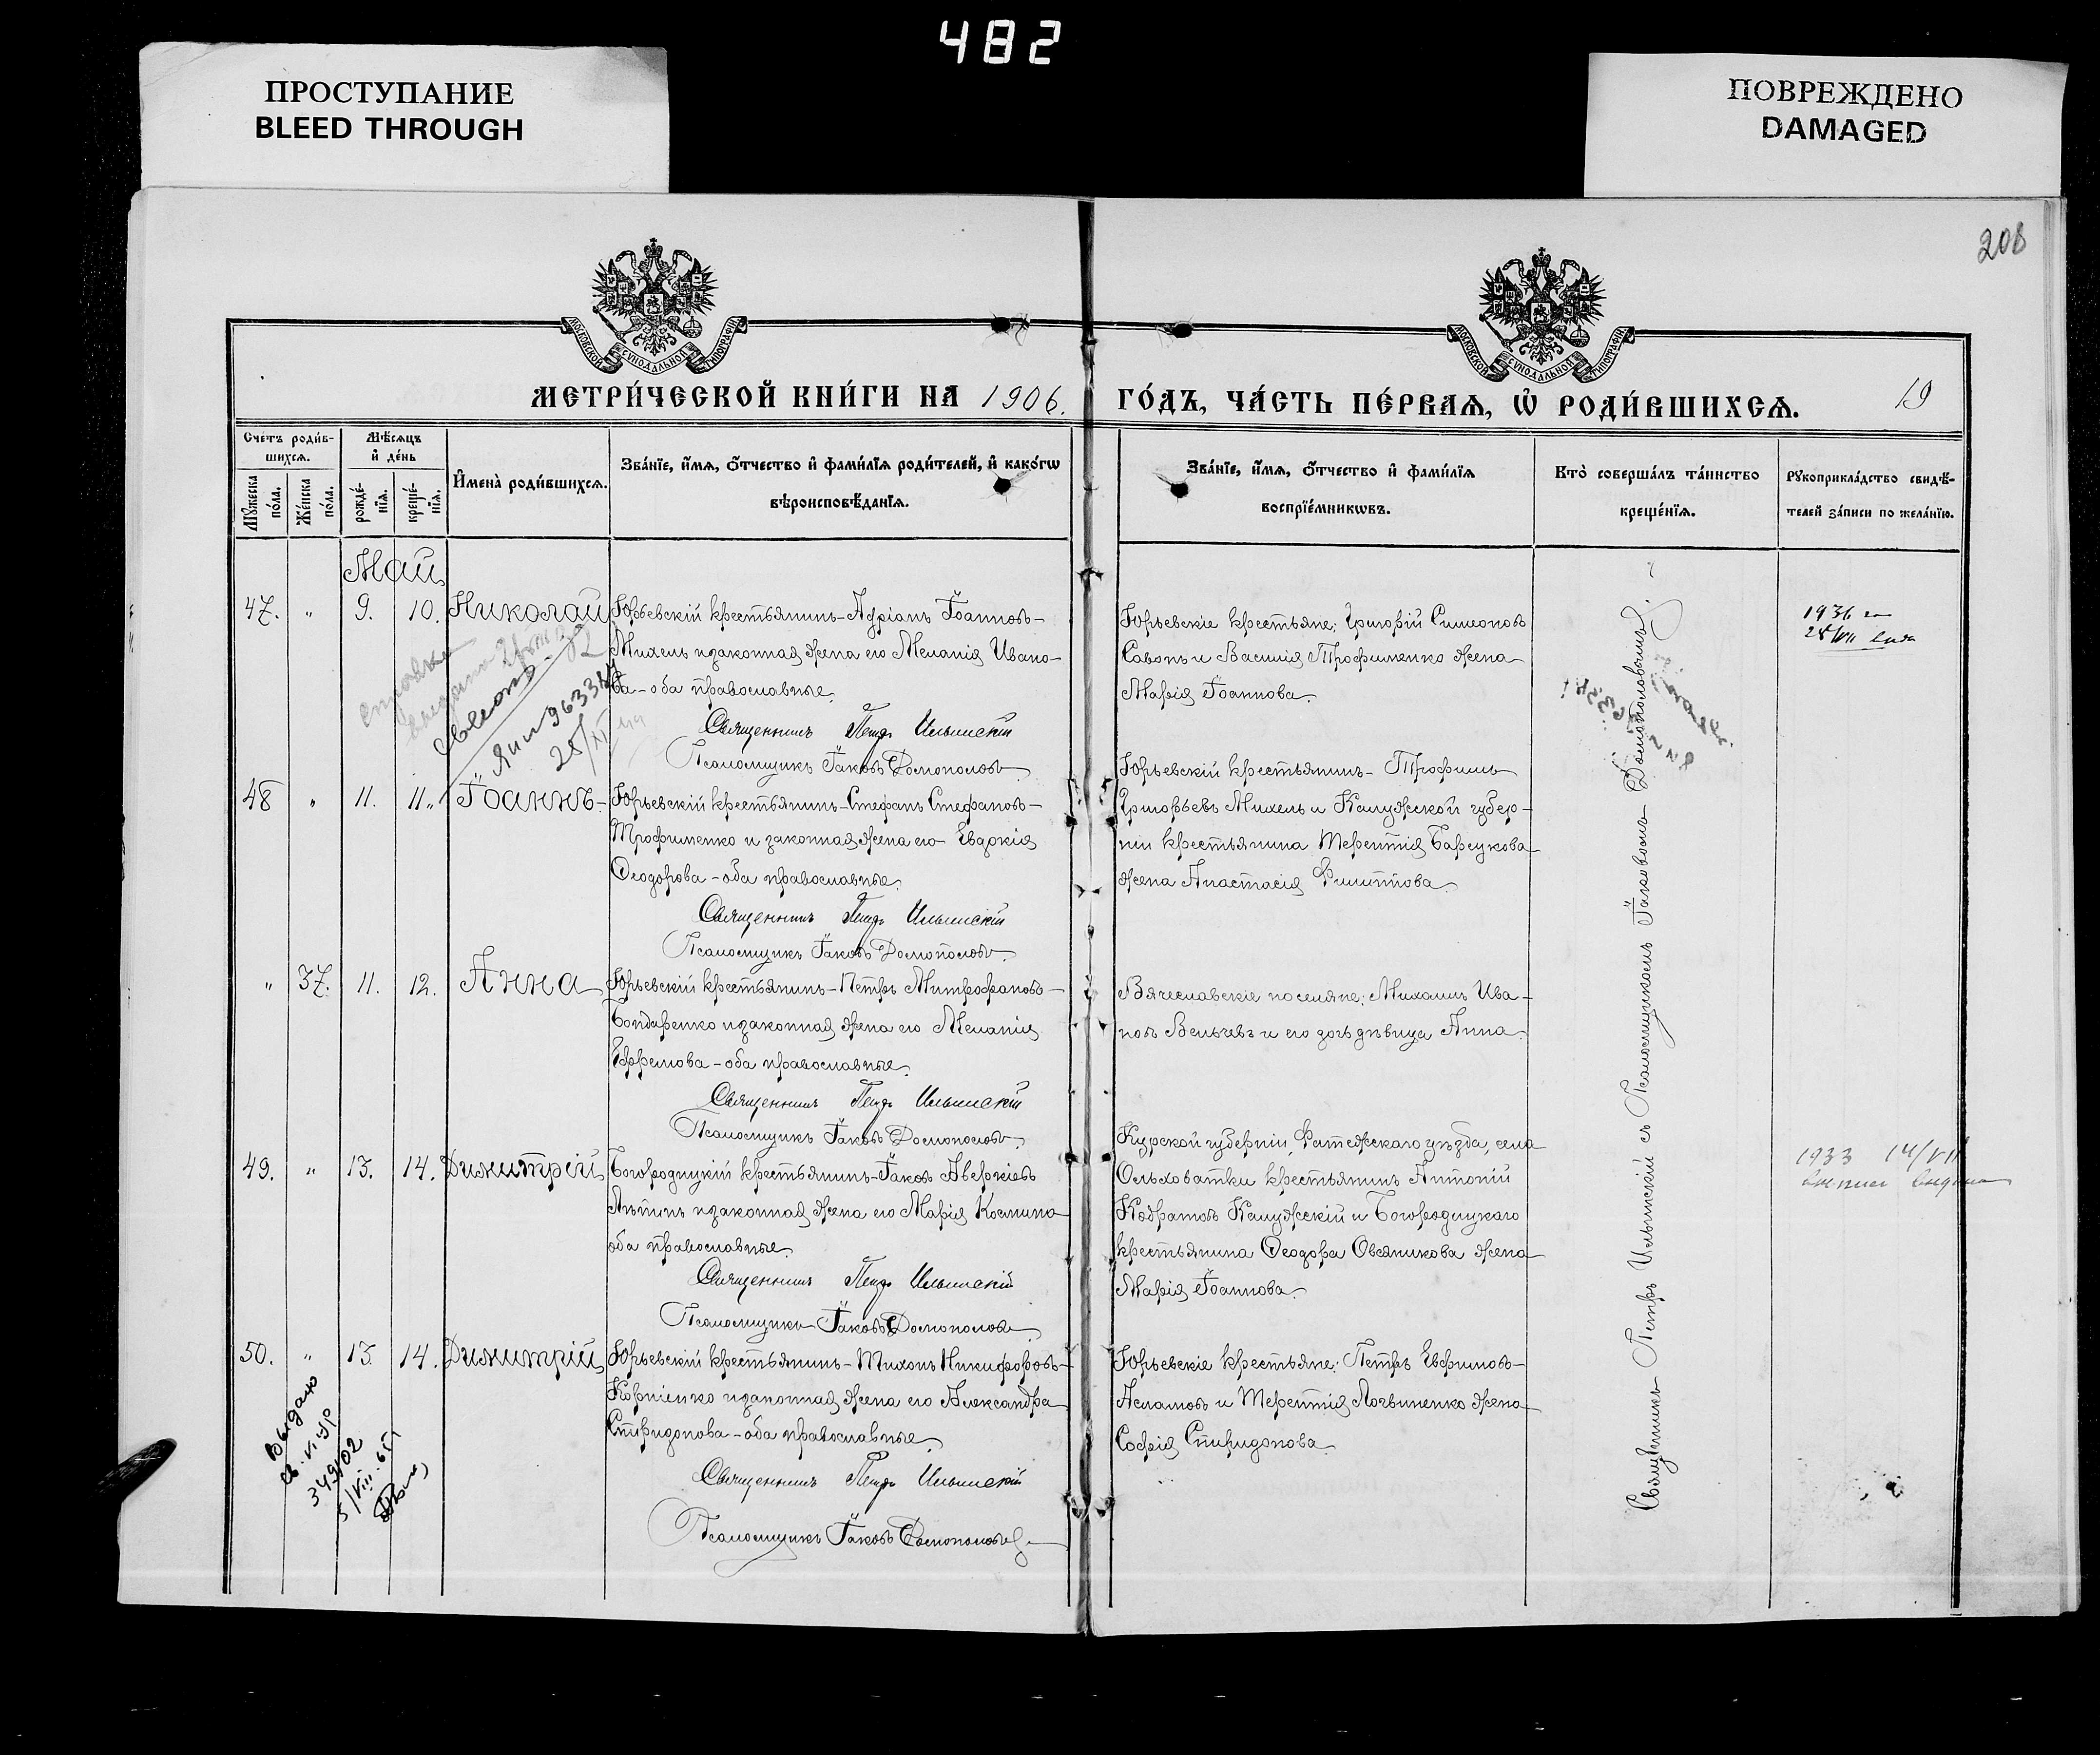 482
ПРОСТУПАНИЕ
BLEED THROUGH
ПОВРЕЖДЕНО
DAMAGED
208
МОСКОВСКОЙ СѴНОДАЛЬНОЙ ТИПОГРАФІИ
МОСКОВСКОЙ СѴНОДАЛЬНОЙ ТИПОГРАФІИ
МЕТРИ́ЧЕСКОЙ КНИ́ГИ НА 1906. ГО́ДЪ, ЧА́СТЬ ПЕ́РВАѦ, Ѡ҆ РОДИ́ВШИХСѦ. 19
Сче́тъ роди́вшихсѧ.
Мꙋ́жеска по́ла.
Же́нска по́ла.
Мѣ́сѧцъ и҆ де́нь
рожде́нїѧ.
креще́нїѧ.
И҆мена̀ роди́вшихсѧ.
Зва́нїе, и҆́мѧ, ѻ҆́тчество и҆ фами́лїѧ роди́телей, и҆ како́гѡ
вѣроисповѣ́данїѧ.
Зва́нїе, и҆́мѧ, ѻ҆́тчество и҆ фами́лїѧ
воспрїе́мникѡвъ.
Кто̀ соверша́лъ та́инство
креще́нїѧ.
Рꙋкоприкла́дство свидѣ́-
телей за́писи по жела́нїю.
Май
47. „ 9. 10. Николай
Юрьевскій крестьянинъ-Адріанъ Іоанновъ-
Михель и законная жена его Меланія Ивано-
ва - оба православные.
Священникъ Петръ Ильинскій
Псаломщикъ Іаковъ Домополовъ
Юрьевскіе крестьяне: Григорій Симеоновъ
Савонъ и Василія Трофименко жена
Марія Іоаннова.
1936 г
48 „ 11. 11„ Іоаннъ-
Юрьевскій крестьянинъ-Стефанъ Стефановъ-
Трофименко и законная жена его Евдокія
Ѳеодорова - оба православные.
Священникъ Петръ Ильинскій
Псаломщикъ Іаковъ Домополовъ.
Юрьевскій крестьянинъ- Трофимъ
Григорьевъ Михель и Калужской губер-
ніи крестьянина Терентія Барсукова
жена Анастасія Филиппова.
„ 37. 11. 12. Анна
Юрьевскій крестьянинъ-Петръ Митрофановъ-
Бондаренко и законная жена его Меланія
Ефремова - оба православные.
Священникъ Петръ Ильинскій
Псаломщикъ Іаковъ Домополовъ.
Вячеславскіе поселяне: Михаилъ Ива-
новъ Вельчевъ и его дочь девица Анна.
49. „ 13. 14. Димитрій
Богородицкій крестьянинъ-Іаковъ Аверкіевъ
Анпинъ и законная жена его Марія Космина
оба православные.
Священникъ Петръ Ильинскій
Псаломщикъ Іаковъ Домополовъ.
Курской губерніи, Фатежскаго уѣзда, села
Ольховатки крестьянинъ Антоній
Кодратовъ Калужскій и Богородицкаго
крестьянина Ѳеодора Овсяникова жена
Марія Іоаннова.
1933 14/VII
50. „ 13. 14. Димитрій
Юрьевскій крестьянинъ-Тихонъ Никифоровъ-
Корніенко и законная жена его Александра
Спиридонова - оба православные.
Священникъ Петръ Ильинскій
Псаломщикъ Іаковъ Домополовъ
Юрьевскіе крестьяне: Петръ Евфимовъ-
Аслановъ и Терентія Логвиненко жена
Софія Спиридонова.
Выдано
349102
5/VIII.
Священникъ Петръ Ильинскій съ Псаломщикомъ Іаковомъ Домополовымъ.